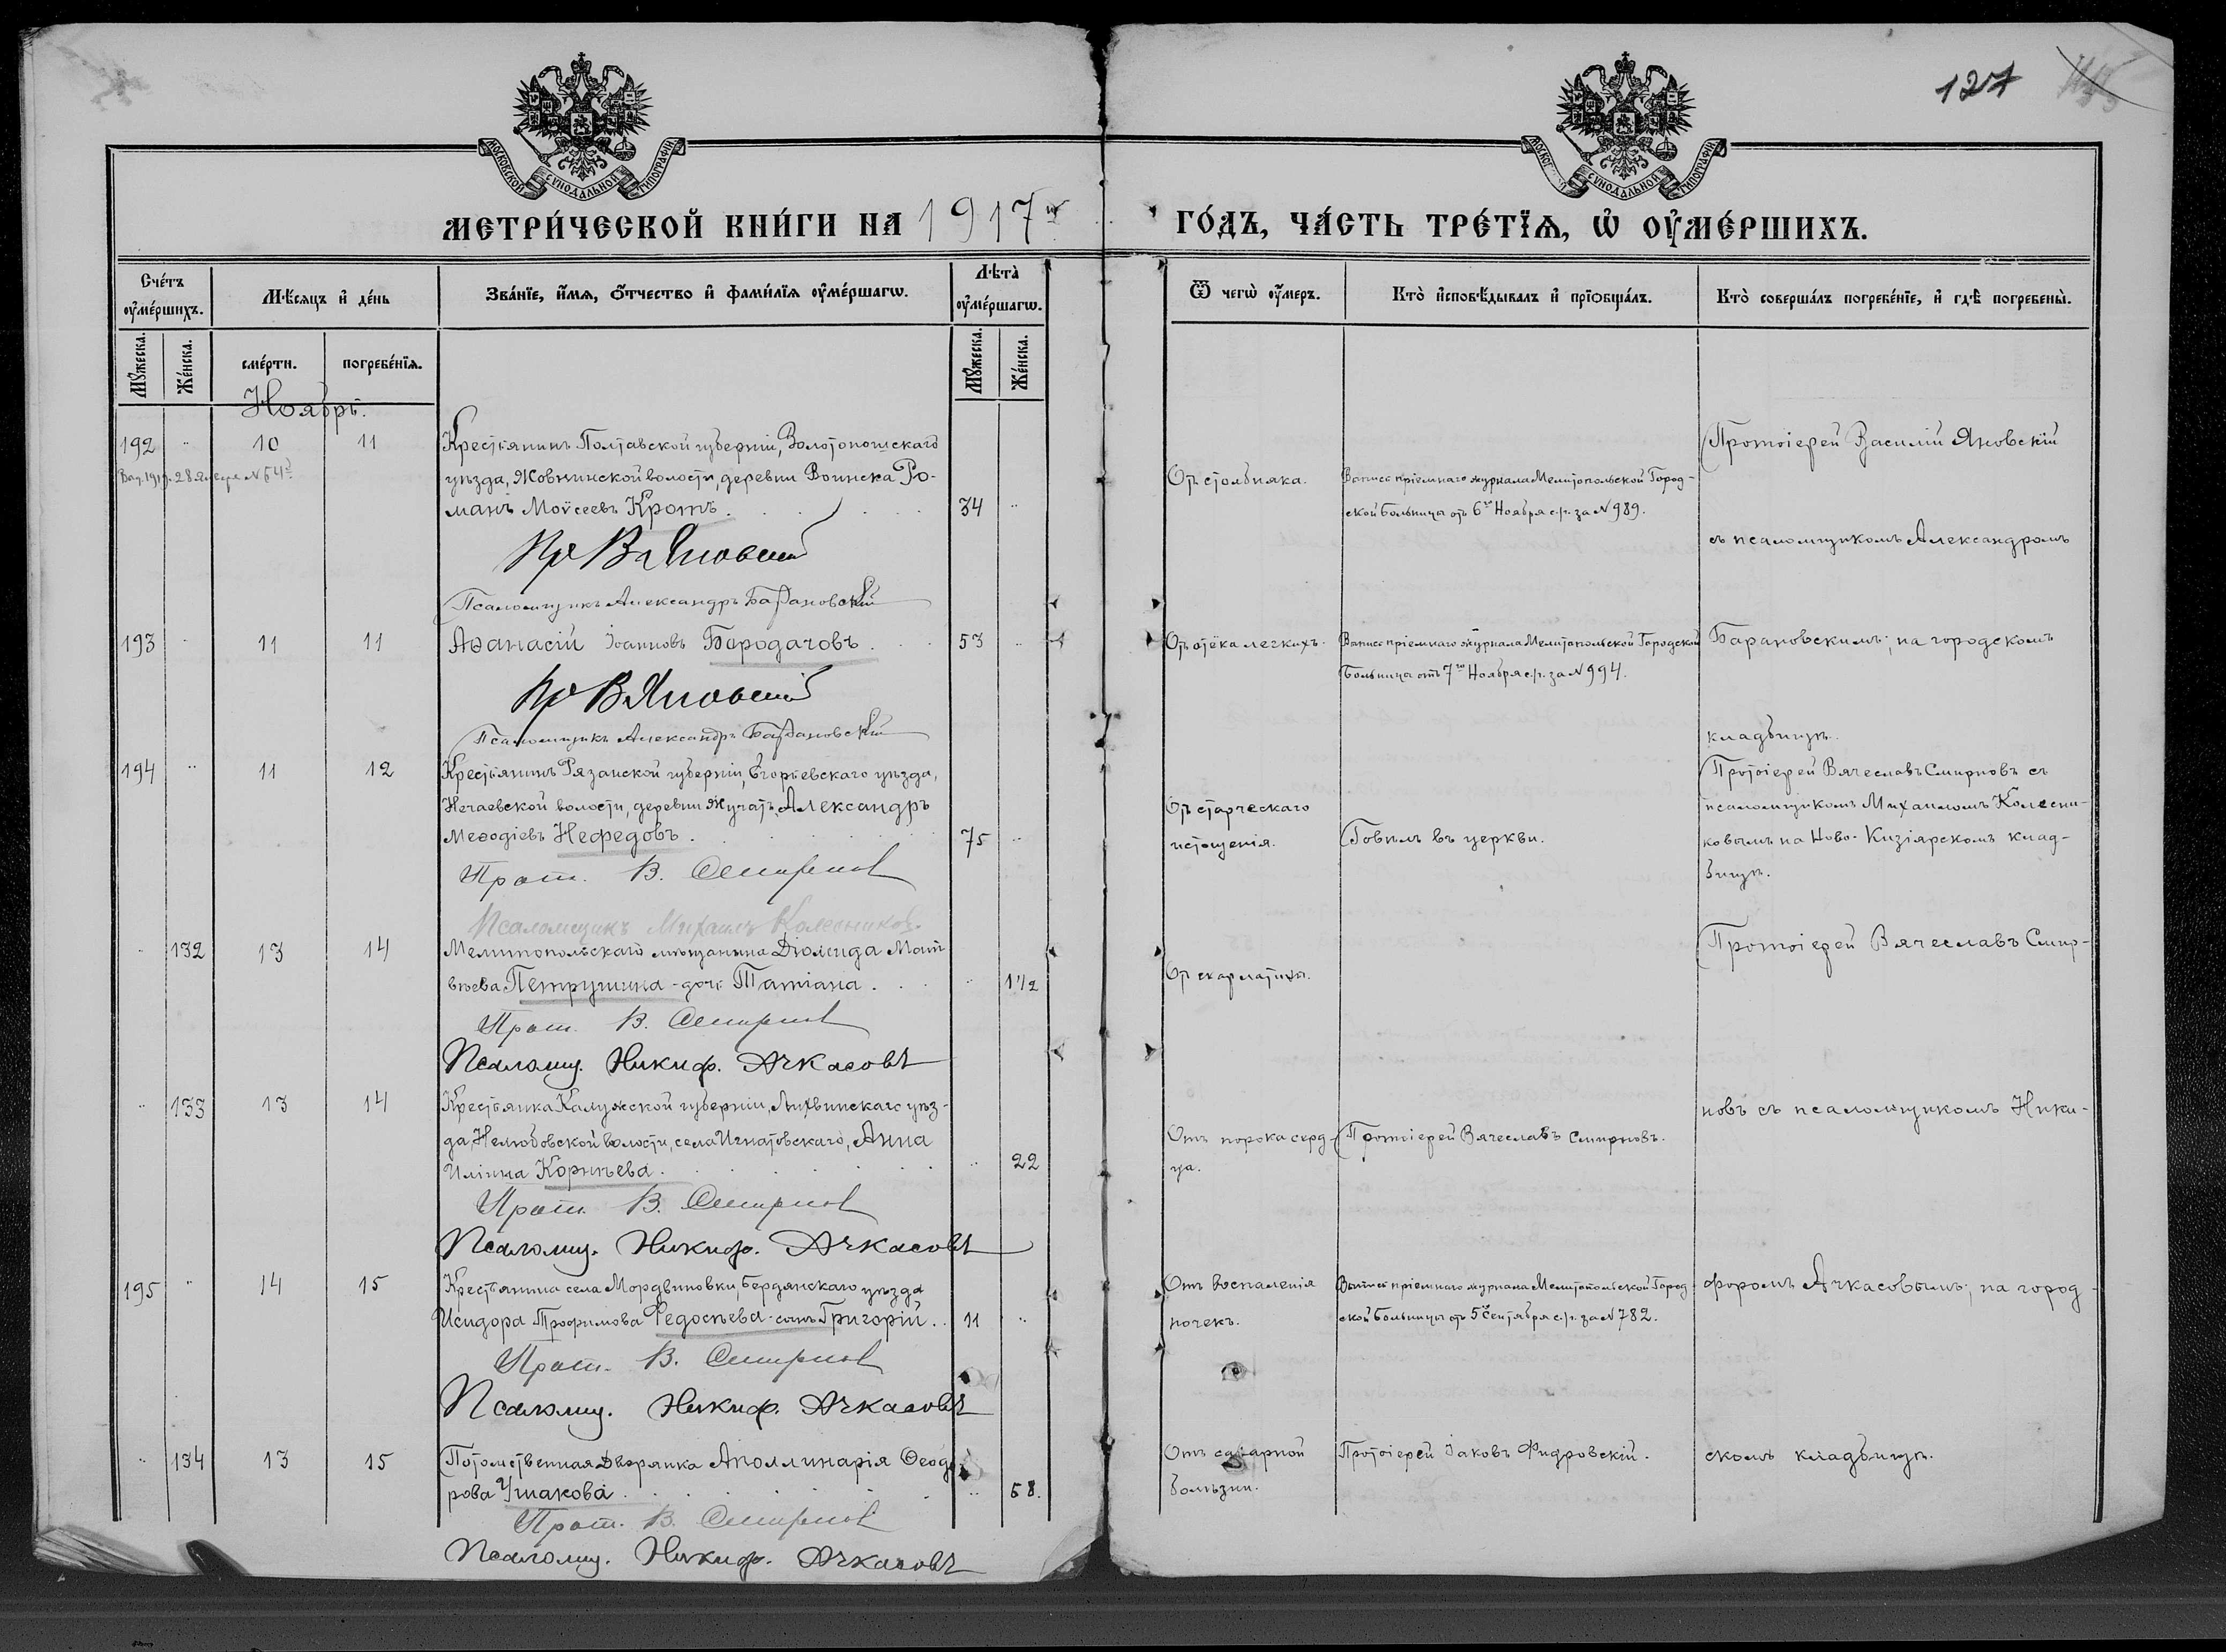 127
МОСКОВСКОЙ СѴНОДАЛЬНОЙ ТИПОГРАФІИ
МОСКОВСКОЙ СѴНОДАЛЬНОЙ ТИПОГРАФІИ
МЕТРИ́ЧЕСКОЙ КНИ́ГИ НА 1917й ГО́ДЪ, ЧА́СТЬ ТРЕ́ТЇѦ, Ѡ҆ ОУ҆МЕ́РШИХЪ.
Сче́тъ оу҆ме́ршихъ.
Мѣ́сяцъ и҆ де́нь
Зва́нїе, и҆́мѧ, ѻ҆́тчество и҆ фами́лїѧ оу҆ме́ршагѡ.
Лѣта̀ оу҆ме́ршагѡ.
Ѿ чегѡ̀ оу҆́меръ.
Кто̀ и҆сповѣ́дывалъ и҆ прїѡбща́лъ.
Кто̀ соверша́лъ погребе́нїе, и҆ гдѣ̀ погребены̀.
Мꙋ́жеска.
Же́нска.
сме́рти.
погребе́нїѧ.
Мꙋ́жеска.
Же́нска.
Ноябрь.
192 " 10 11
Крестьянинъ Полтавской губерніи, Золотоношскаго
уѣзда, Жовнинской волости, деревни Воинска Ро-
манъ Моѵсеевъ Кротъ. 34 "
Пр В Яновскій
Псаломщикъ Александръ Барановскій
Отъ столбняка.
Выпись пріемнаго журнала Мелитопольской Город-
ской Больницы отъ 6го Ноября с.г. за № 989.
Протоіерей Василій Яновскій
съ псаломщикомъ Александромъ
193 " 11 11
Аѳанасій Іоанновъ Бородачовъ. 53 "
Пр В Яновскій
Псаломщикъ Александръ Барановскій
Отъ отёка легкихъ.
Выпись пріемнаго журнала Мелитопольской Городской
Больницы отъ 7го Ноября с.г. за № 994.
Барановскимъ; на городскомъ
кладбищѣ.
194 " 11 12
Крестьянинъ Рязанской губерніи, Егорьевскаго уѣзда,
Нечаевской волости, деревни Жучатъ, Александръ
Меѳодіевъ Нефедовъ. 75 "
Прот. В. Смирнов
Псаломщикъ Михаилъ Колесников
Отъ старческаго
истощенія.
Говѣлъ въ церкви.
Протоіерей Вячеславъ Смирновъ съ
псаломщикомъ Михаиломъ Колесни-
ковымъ на Ново-Кизіярскомъ клад-
бищѣ.
" 132 13 14
Мелитопольскаго мѣщанина Діомида Мат
вѣева Петрушина - дочь Татіана. " 1 1/2
Прот. В. Смирнов
Псаломщ. Никиф. Ачкасовъ
От скарлатины.
Протоіерей Вячеславъ Смир-
" 133 13 14
Крестьянка Калужской губерніи, Лихвинскаго уѣз-
да, Нелюбовской волости, села Игнатовскаго, Анна
Иліина Корнѣева. " 22
Прот. В. Смирнов
Псаломщ. Никиф. Ачкасовъ
Отъ порока серд-
ца.
Протоіерей Вячеславъ Смирновъ.
новъ съ псаломщикомъ Ники-
195 " 14 15
Крестьянина села Мордвиновки, Бердянскаго уѣзда
Исидора Трофимова Федосѣева - сынъ Григорій. 11 "
Прот. В. Смирнов
Псаломщ. Никиф. Ачкасовъ
Отъ воспаленія
почекъ.
Выпись пріемнаго журнала Мелитопольской Город
ской Больницы отъ 5го Сентября с.г. за № 782.
форомъ Ачкасовымъ; на город-
" 134 13 15
Потомственная Дворянка Аполлинарія Ѳеодо-
рова Ушакова. " 58.
Прот. В. Смирнов
Псаломщ. Никиф. Ачкасовъ
Отъ сахарной
болѣзни.
Протоіерей Іаковъ Фидровскій.
скомъ кладбищѣ.